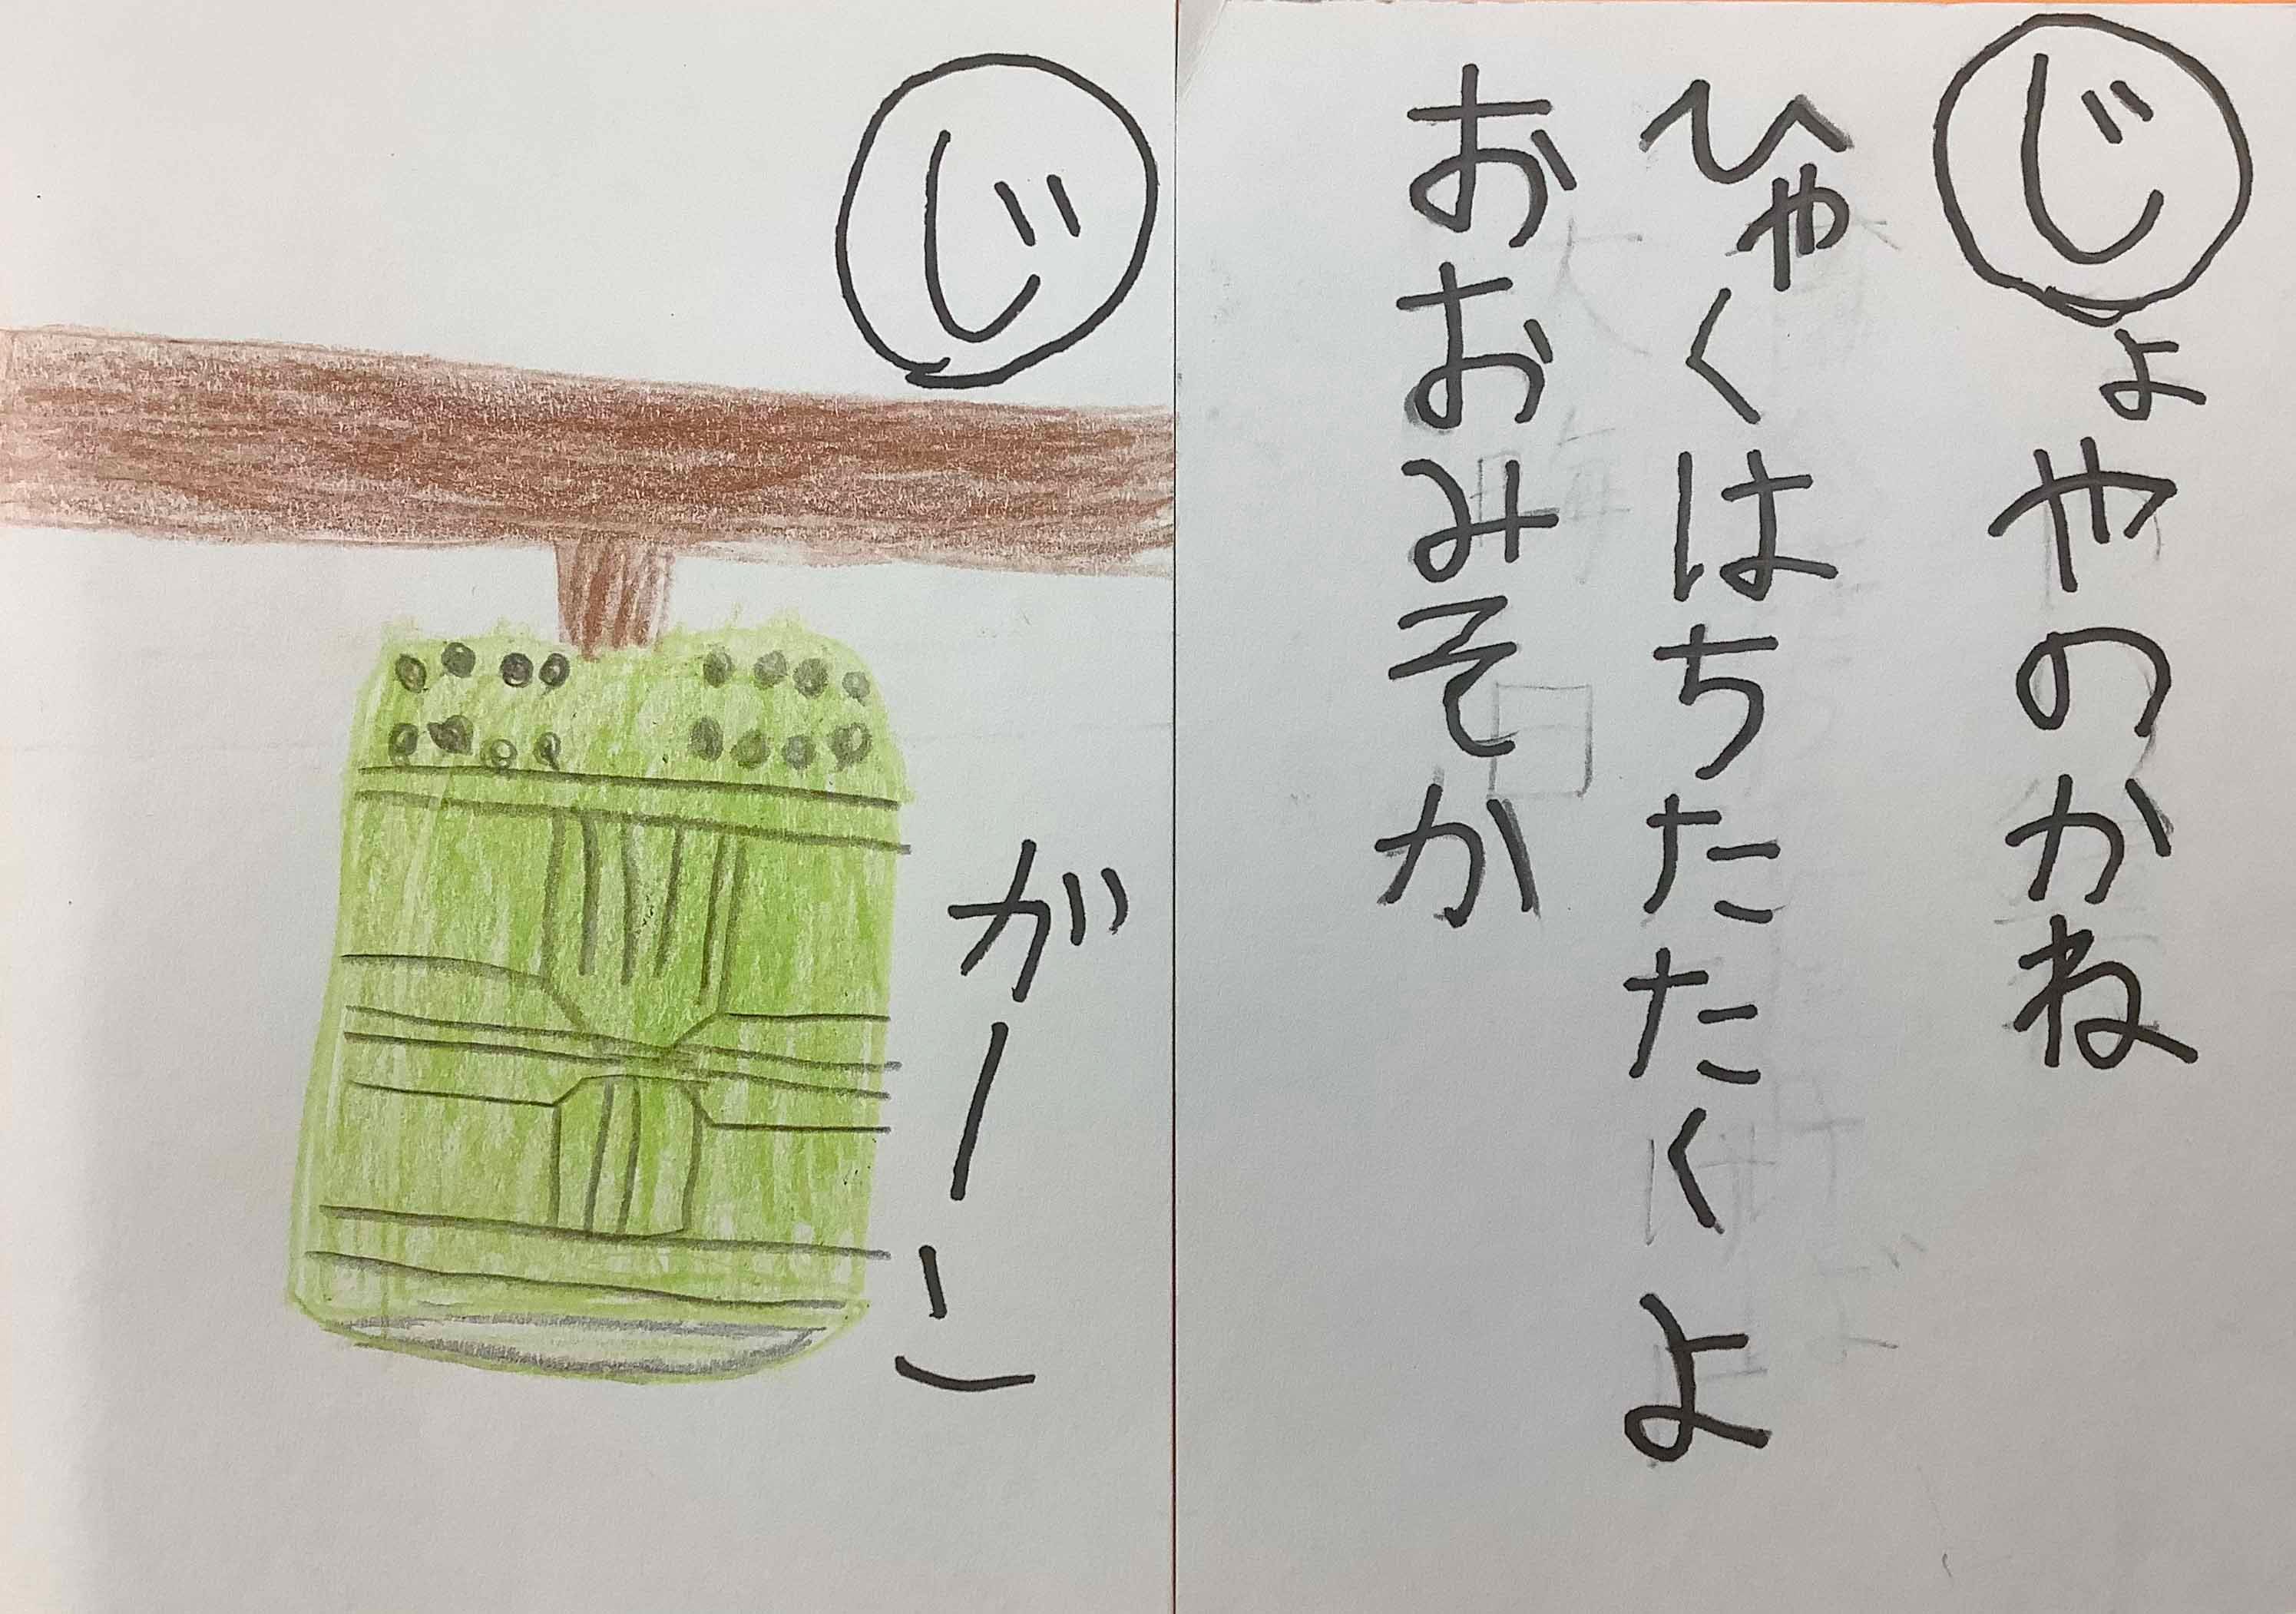 じょやのかね
ひゃくはちたたくよ
おおみそか
じ
がーん